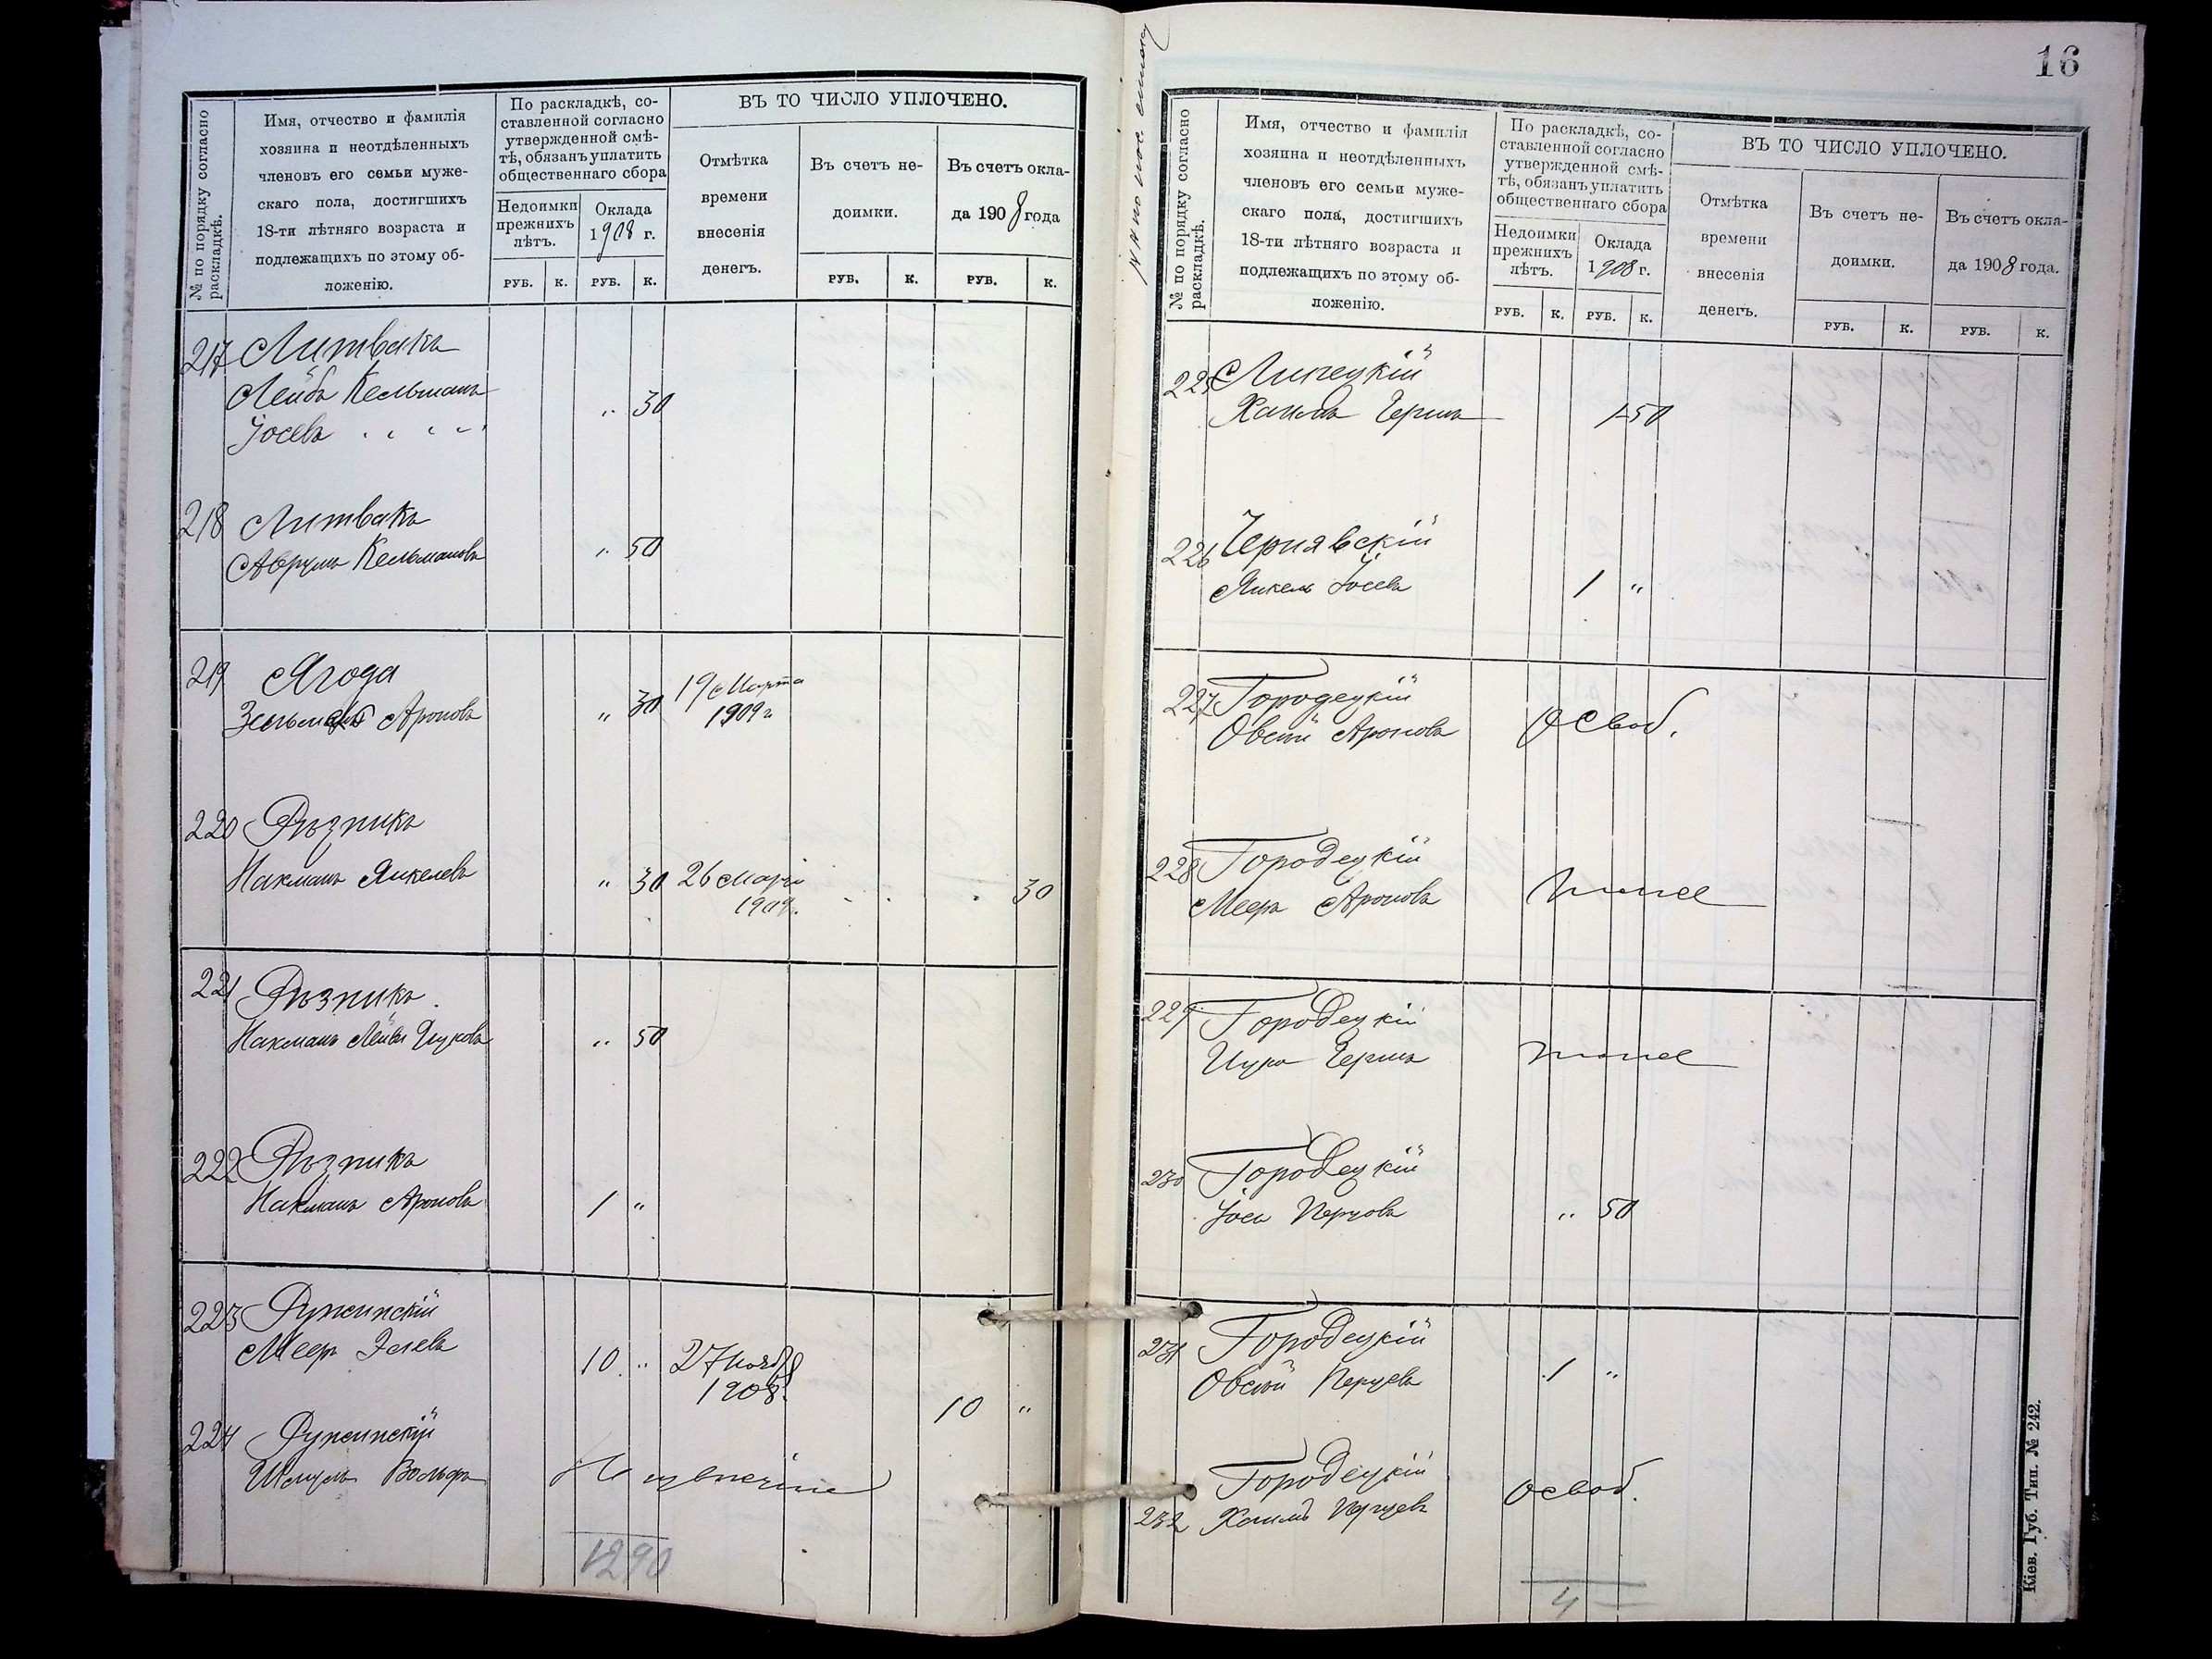 № по порядку согласно раскладкѣ.
Имя, отчество и фамилія
хозяина и неотдѣленныхъ
членовъ его семьи муже-
скаго пола, достигшихъ
18-ти лѣтняго возраста и
подлежащихъ по этому об-
ложенію.
По раскладкѣ, со-
ставленной согласно
утвержденной смѣ-
тѣ, обязанъ уплатить
общественнаго сбора
Недоимки
прежнихъ
лѣтъ.
Оклада
1908 г.
ВЪ ТО ЧИСЛО УПЛОЧЕНО.
Отмѣтка
времени
внесенія
денегъ.
Въ счетъ не-
доимки.
Въ счетъ окла-
да 1908 года
РУБ. К. РУБ. К. РУБ. К. РУБ. К.
217 Литвакъ
Лейба Кельманъ „ 30
Іосевъ „ „ „
218 Литвакъ
Аврумъ Кельмановъ „ 50
219 Ягода
Зельманъ Ароновъ „ 30 19 Марта
1909 г.
220 Рѣзникъ
Нахманъ Янкелевъ „ 30 26 Марта 30
1909
221 Рѣзникъ
Нахманъ Лейба Ицковъ „ 50
222 Рѣзникъ
Нахманъ Ароновъ 1 „
223 Ружинскій
Мееръ Элевъ 10 „ 27 Нояб
1908. 10 „
224 Ружинскій
Шмуль Вольфъ
1290
16
№ по порядку согласно раскладкѣ.
Имя, отчество и фамилія
хозяина и неотдѣленныхъ
членовъ его семьи муже-
скаго пола, достигшихъ
18-ти лѣтняго возраста и
подлежащихъ по этому об-
ложенію.
По раскладкѣ, со-
ставленной согласно
утвержденной смѣ-
тѣ, обязанъ уплатить
общественнаго сбора
Недоимки
прежнихъ
лѣтъ.
Оклада
1908 г.
ВЪ ТО ЧИСЛО УПЛОЧЕНО.
Отмѣтка
времени
внесенія
денегъ.
Въ счетъ не-
доимки.
Въ счетъ окла-
да 1908 года.
РУБ. К. РУБ. К. РУБ. К. РУБ. К.
225 Липецкій
Хаимъ Герш 1 50
226 Чернявскій
Янкель Іосевъ 1 „
227 Городецкій
Овсѣй Ароновъ Освоб.
228 Городецкій
Мееръ Ароновъ
229 Городецкій
Ицко Герш
230 Городецкій
Іось Перцовъ „ 50
231 Городецкій
Овсѣй Перцевъ 1 „
Городецкій
232 Хаимъ Перцевъ Освоб.
4
Кіев. Губ. Тип. № 242.